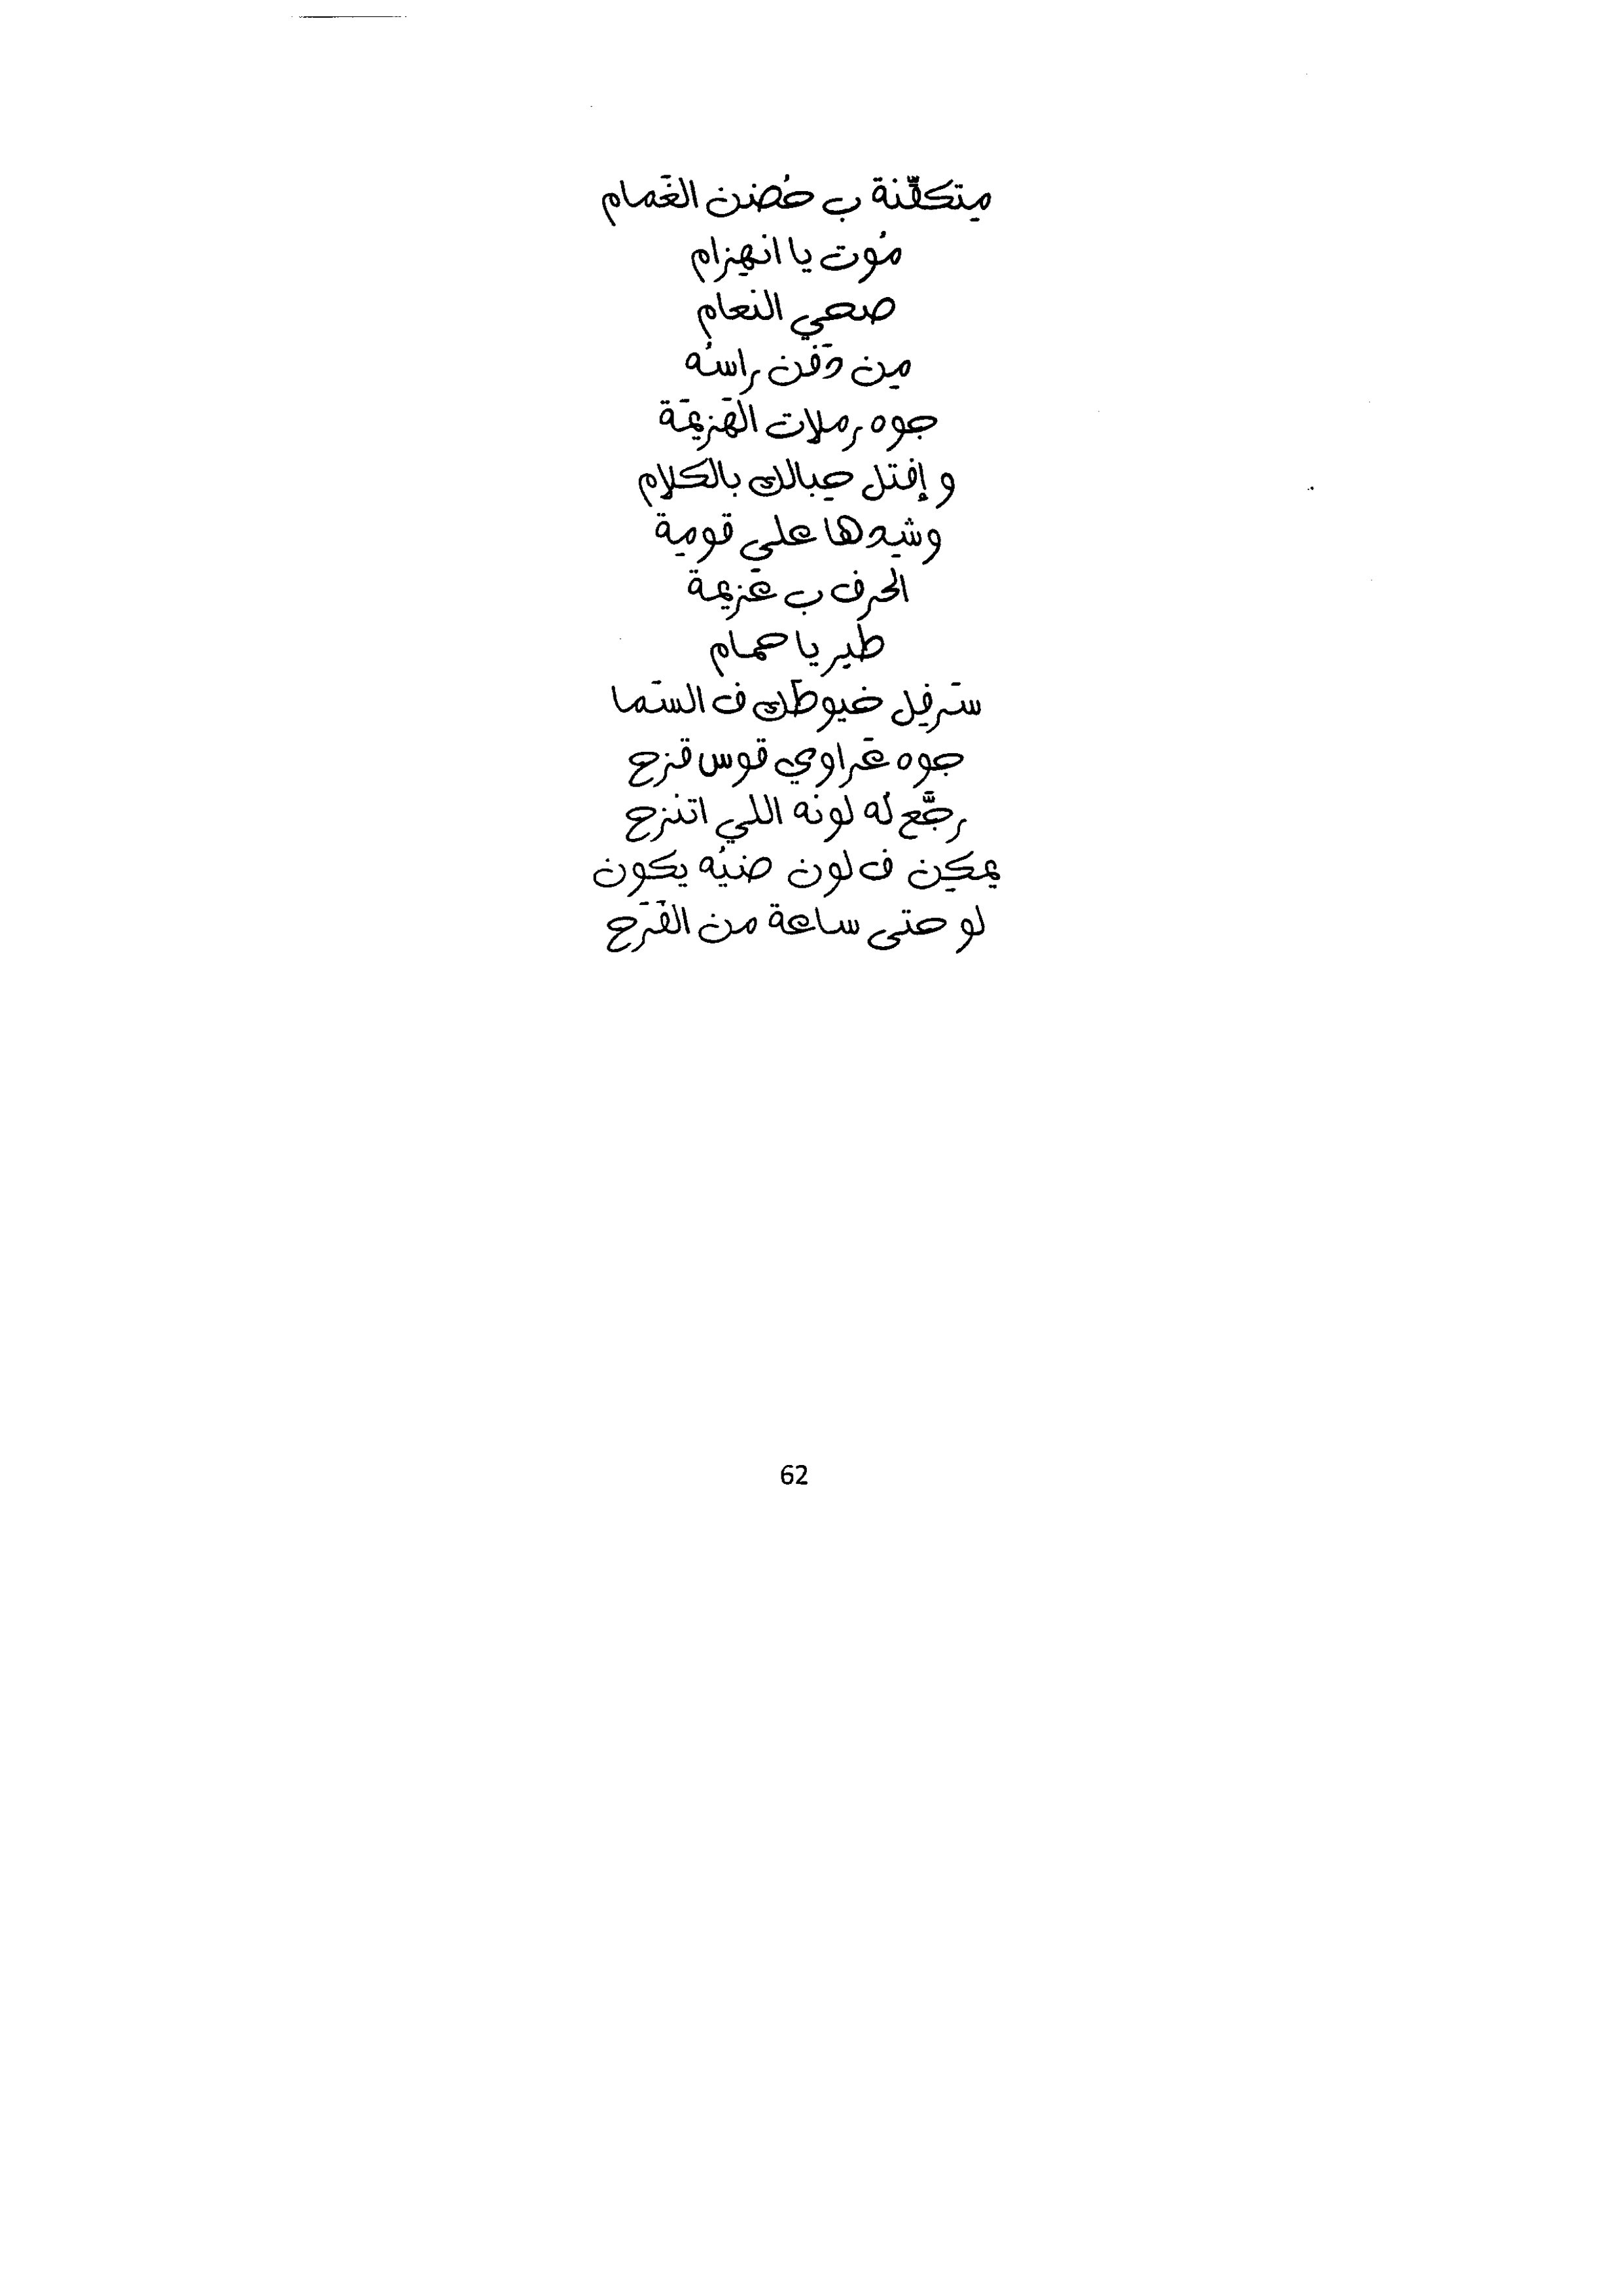 مِتكفِّنة ب حُضن الغَمام
مُوت يا انهِزام
صحي النعام
مِن دَفن راسُه
جوه رملات الهَزيمَة
و إفتل حِبالك بالكَلام
وشِدها علي قومِة
الحَرف ب عَزيمة
طير يا حمام
سَرفِل خيوطَك ف السَما
جوه عَراوي قوس قزح
رجَّع لُه لونه اللي اتنزح
يمكِن ف لون ضيُه يكون
لو حتى ساعة من الفَرَح
62